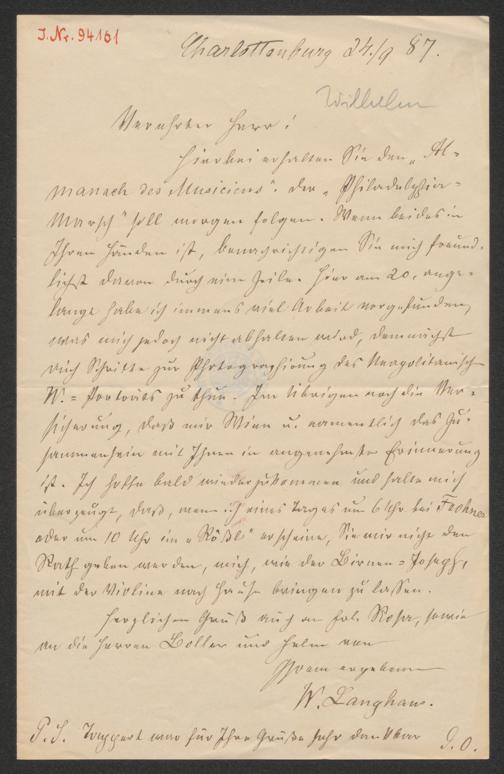 J. Nr. 94161
Charlottenburg 24./9 87.
Wilhelm
Verehrter Herr!
Hierbei erhalten Sie den „Al-
manach des Musiciens". Der „Philadelphia-
Marsch" soll morgen folgen. Wenn beides in
Ihren Händen ist, benachrichtigen Sie mich freund-
lichst davon durch eine Zeile. Hier am 20. ange-
langt habe ich immens viel Arbeit vorgefunden,
was mich jedoch nicht abhalten wird, demnächst
auch Schritte zur Photographirung des Neapolitanischen
W.=Portraits zu thun. Im Übrigen noch die Ver-
sicherung, daß mir Wien u. namentlich das Zu-
sammensein mit Ihnen in angenehmster Erinnerung
ist. Ich hoffe bald wiederzukommen und halte mich
überzeugt, daß, wenn ich eines Tages um 6 Uhr bei Frohner
oder um 10 Uhr im „Rößl" erscheine, Sie mir nicht den
Rath geben werden, mich, wie der Birnen=Joseph,
mit der Violine nach Hause bringen zu lassen.
Herzlichen Gruß auch an Frl. Rosa, sowie
an die Herren Boller und Helm von
Ihrem ergebenen
W. Langhans.
P. S. Tappert war für Ihre Grüße sehr dankbar
D. O.